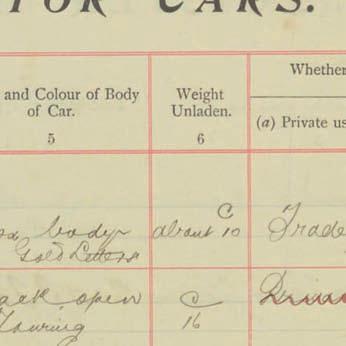 TOR CARS.
and Colour of Body
of Car.
5
Weight
Unladen.
6
Whether
(a) Private us
body
Gold Letters
about 10 C
Trade
open
Touring
C
16